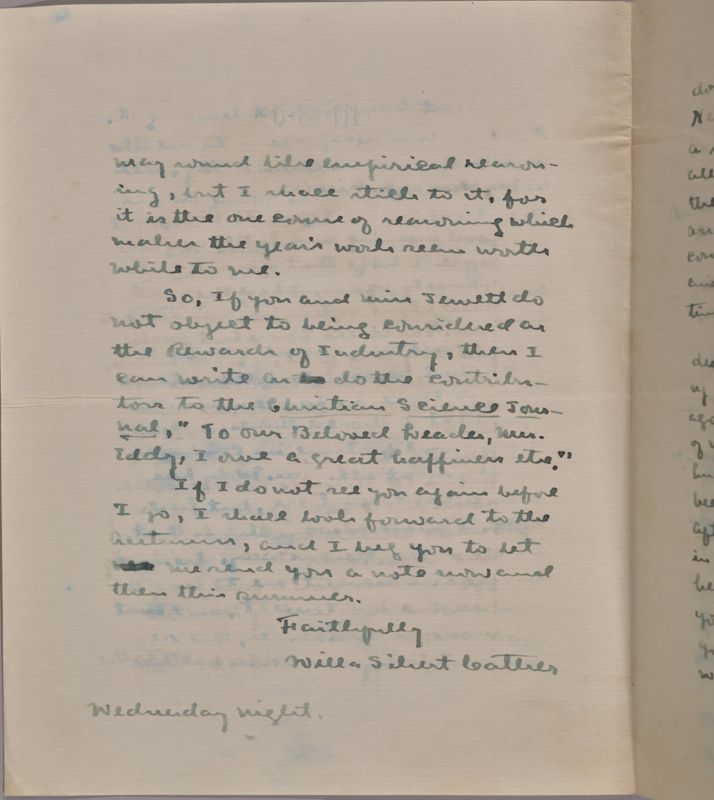 may sound like empirical reason-
ing, but I shall stick to it, for
it is the one course of reasoning which
makes the year's work seem worth
while to me.
So, If you and Miss Jewett do
not object to being considered as
the Rewards of Industry, then I
can write as do the contribu-
tors to the Christian Science Jour-
nal, "To our Beloved Leader, Mrs.
Eddy, I owe a great happiness etc."
If I do not see you again before
I go, I shall look forward to the
Autumn, and I beg you to let
me send you a note now and
then this summer.
Faithfully
Willa Sibert Cather
Wednesday night.